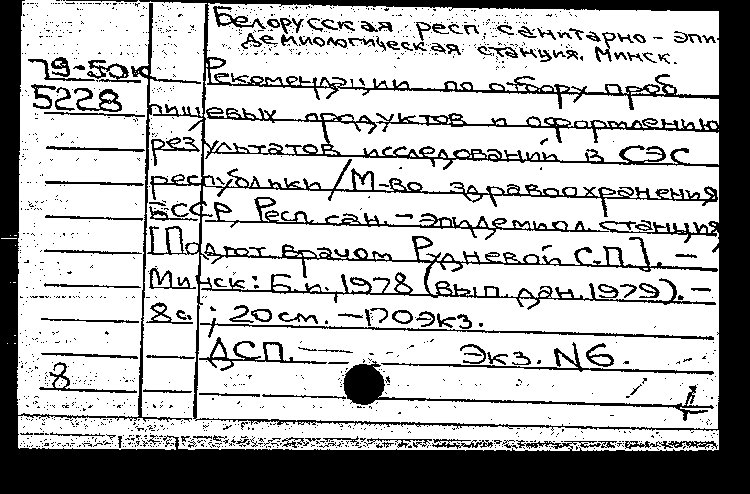 Белорусская респ. санитарно-эпи-
демиологическая станция. Минск.
79-50к
5228
Рекомендации по отбору проб
пищевых продуктов и оформлению
результатов исследований в СЭС
республики / М-во здравоохранения
БССР, Респ. сан.-эпидемиол. станция;
[Подгот. врачом Рудневой С.П.]. –
Минск: Б.и., 1978 (вып. дан. 1979). –
8 с.; 20 см. –
ДСП. Экз. N6.
8